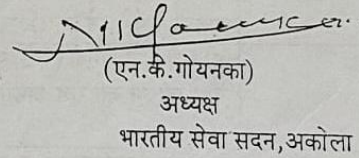 (एन.के.गोयनका)
अध्यक्ष
भारतीय सेवा सदन, अकोला